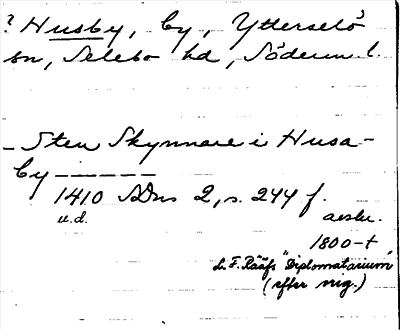 ? Husby, by, Ytterselö
sn, Selebo hd, Söderm. l.
– Sten Skynnare i Husa-
by ––––––
1410 SDns 2, s. 244 f.
u.d.
avskr.
1800-t,
L. F. Rääfs "Diplomatarium"
(efter orig.)